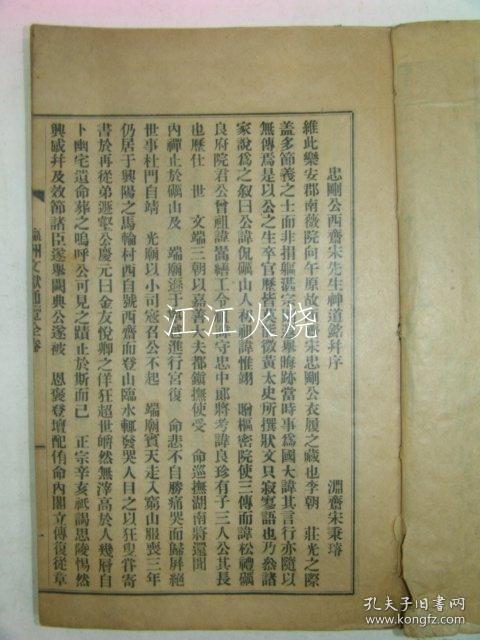 忠剛公西齋宋先生神道銘幷序
淵齋宋秉璿
維此樂安郡南薇院向午原故 宋忠剛公衣履之藏也李朝 莊光之際
盖多節義之士而非捐軀湛宗 晦跡當時事爲國大諱其言行亦隨以
無傳焉是以公之生卒官歷皆 徵黃太史所撰狀文只寂寥語也乃叅諸
家說爲之叙曰公諱侃礪山人 祖諱惟翊 贈樞密院使三傳而諱松禮礪
良府院君公曾祖諱 工令 守忠中郞將考諱良珍有子三人公其長
也歷仕 世 文端三朝以嘉 夫都鎭撫使受 命巡撫湖南將還聞
內禪止於礪山及 端廟遜于 進行宮復 命悲不自勝痛哭而歸屛絕
世事杜門自靖 光廟以小司寇召公不起 端廟賓天走入窮山服喪三年
仍居于興陽之馬輪村西自號西齋而登山臨水輒發哭人目之以狂叟甞寄
書於再從弟遯壑公慶元曰金友悅卿之佯狂超世 然無滓高於人幾層自
卜幽宅遺命葬之嗚呼公可見之蹟止於斯而已 正宗辛亥祇謁思陵愓然
興感幷及效節諸臣遂擧闕典公遂被 恩褒登壇配侑命內閣立傳復從章
文獻通 全卷
一
江江火烧
孔夫子旧书网
kongfz.com